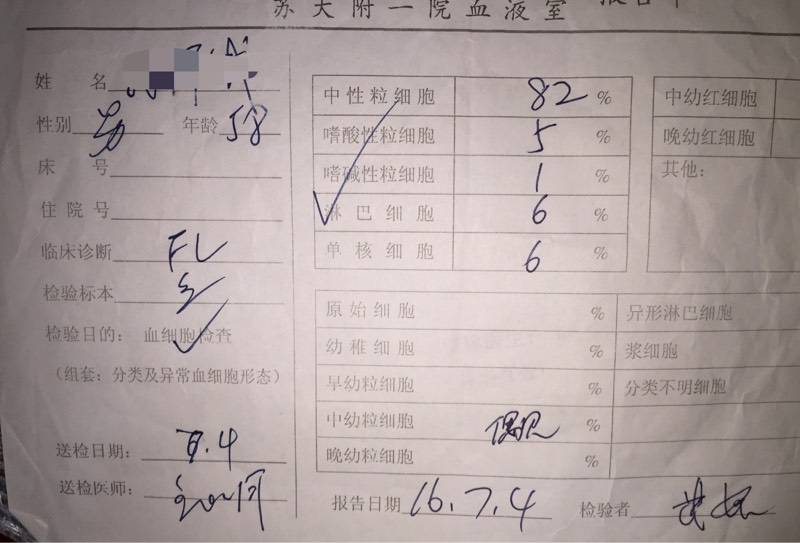 苏大附一院血液室 报告单
姓 名
性别 男 年龄 58
床 号
住院号
临床诊断 FL
检验标本
检验目的: 血细胞检查
(组套: 分类及异常血细胞形态)
送检日期: 7.4
送检医师:
中性粒细胞 82 %
嗜酸性粒细胞 5 %
嗜碱性粒细胞 1 %
淋巴细胞 6 %
单核细胞 6 %
中幼红细胞
晚幼红细胞
其他:
原始细胞 % 异形淋巴细胞
幼稚细胞 % 浆细胞
早幼粒细胞 % 分类不明细胞
中幼粒细胞 偶见 %
晚幼粒细胞 %
报告日期 16.7.4 检验者